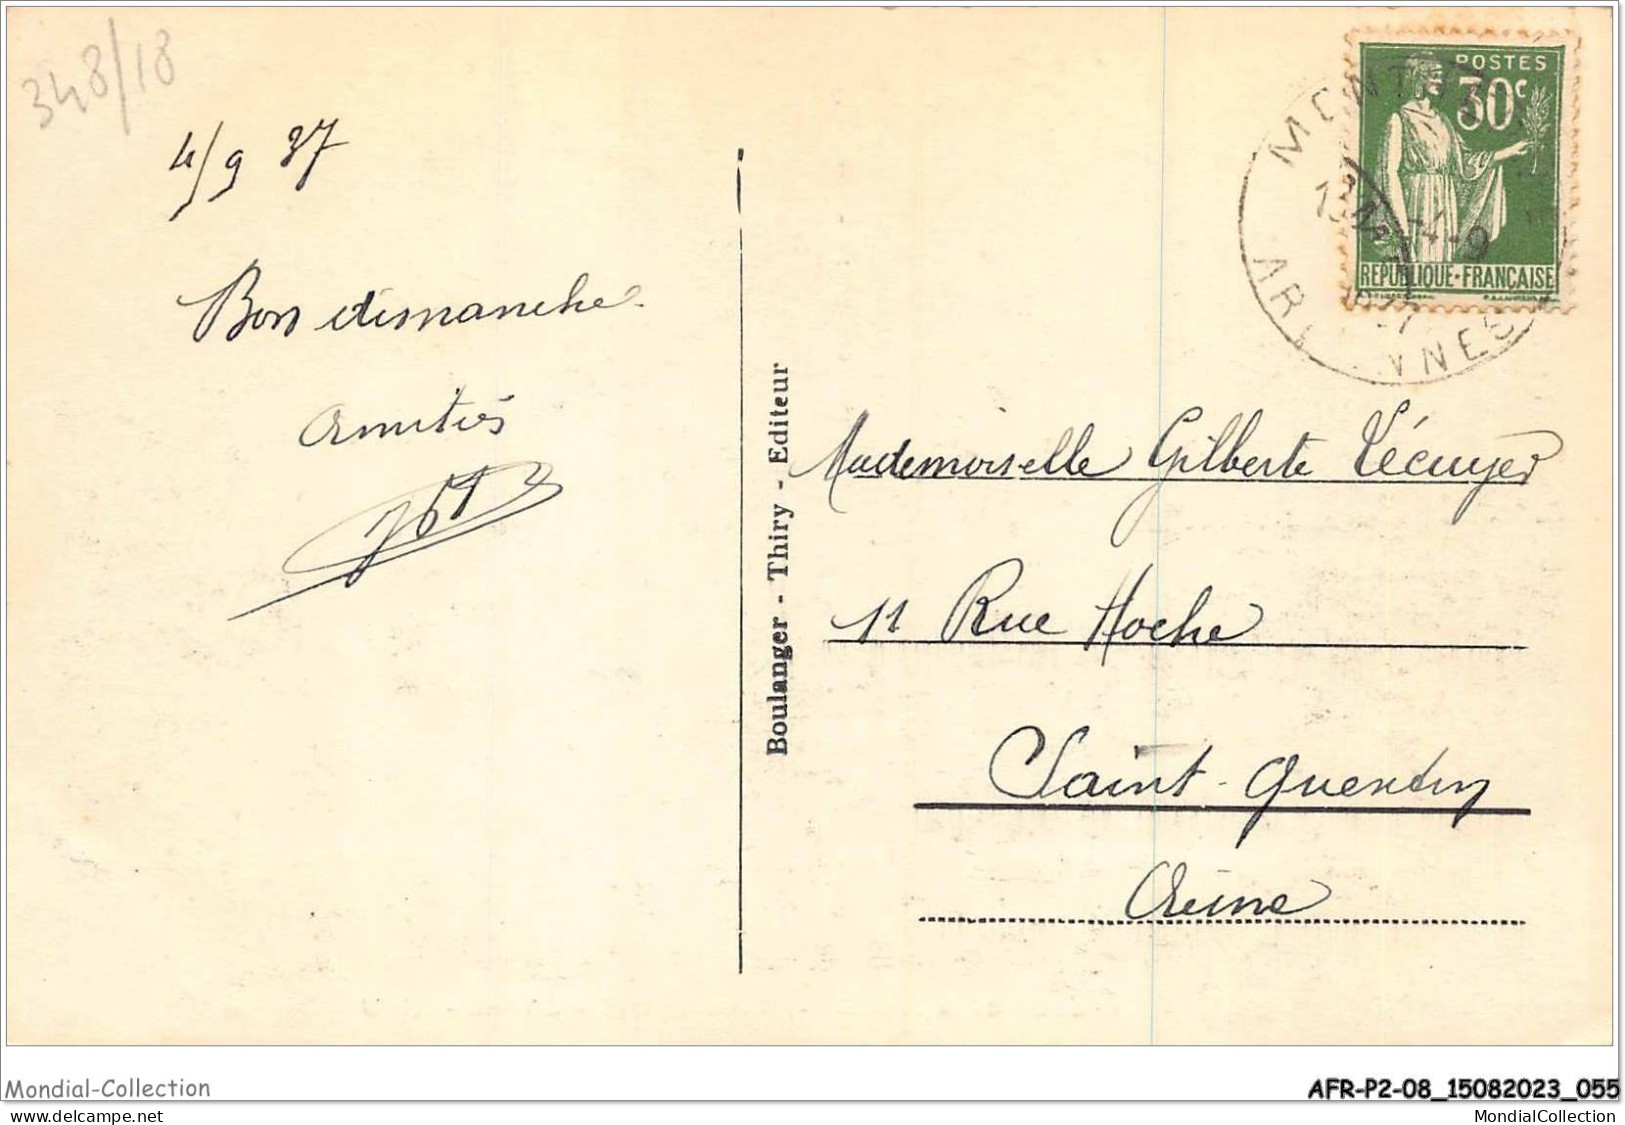 348/18
4/9 37
Bon dimanche.
Amitiés
Boulanger - Thiry - Editeur
POSTES
30c
REPUBLIQUE·FRANÇAISE
13
-4-9
Mademoiselle Gilberte Lécuyer
11 Rue Hoche
Saint-Quentin
Aisne
Mondial-Collection
AFR-P2-08_15082023_055
www.delcampe.net
MondialCollection